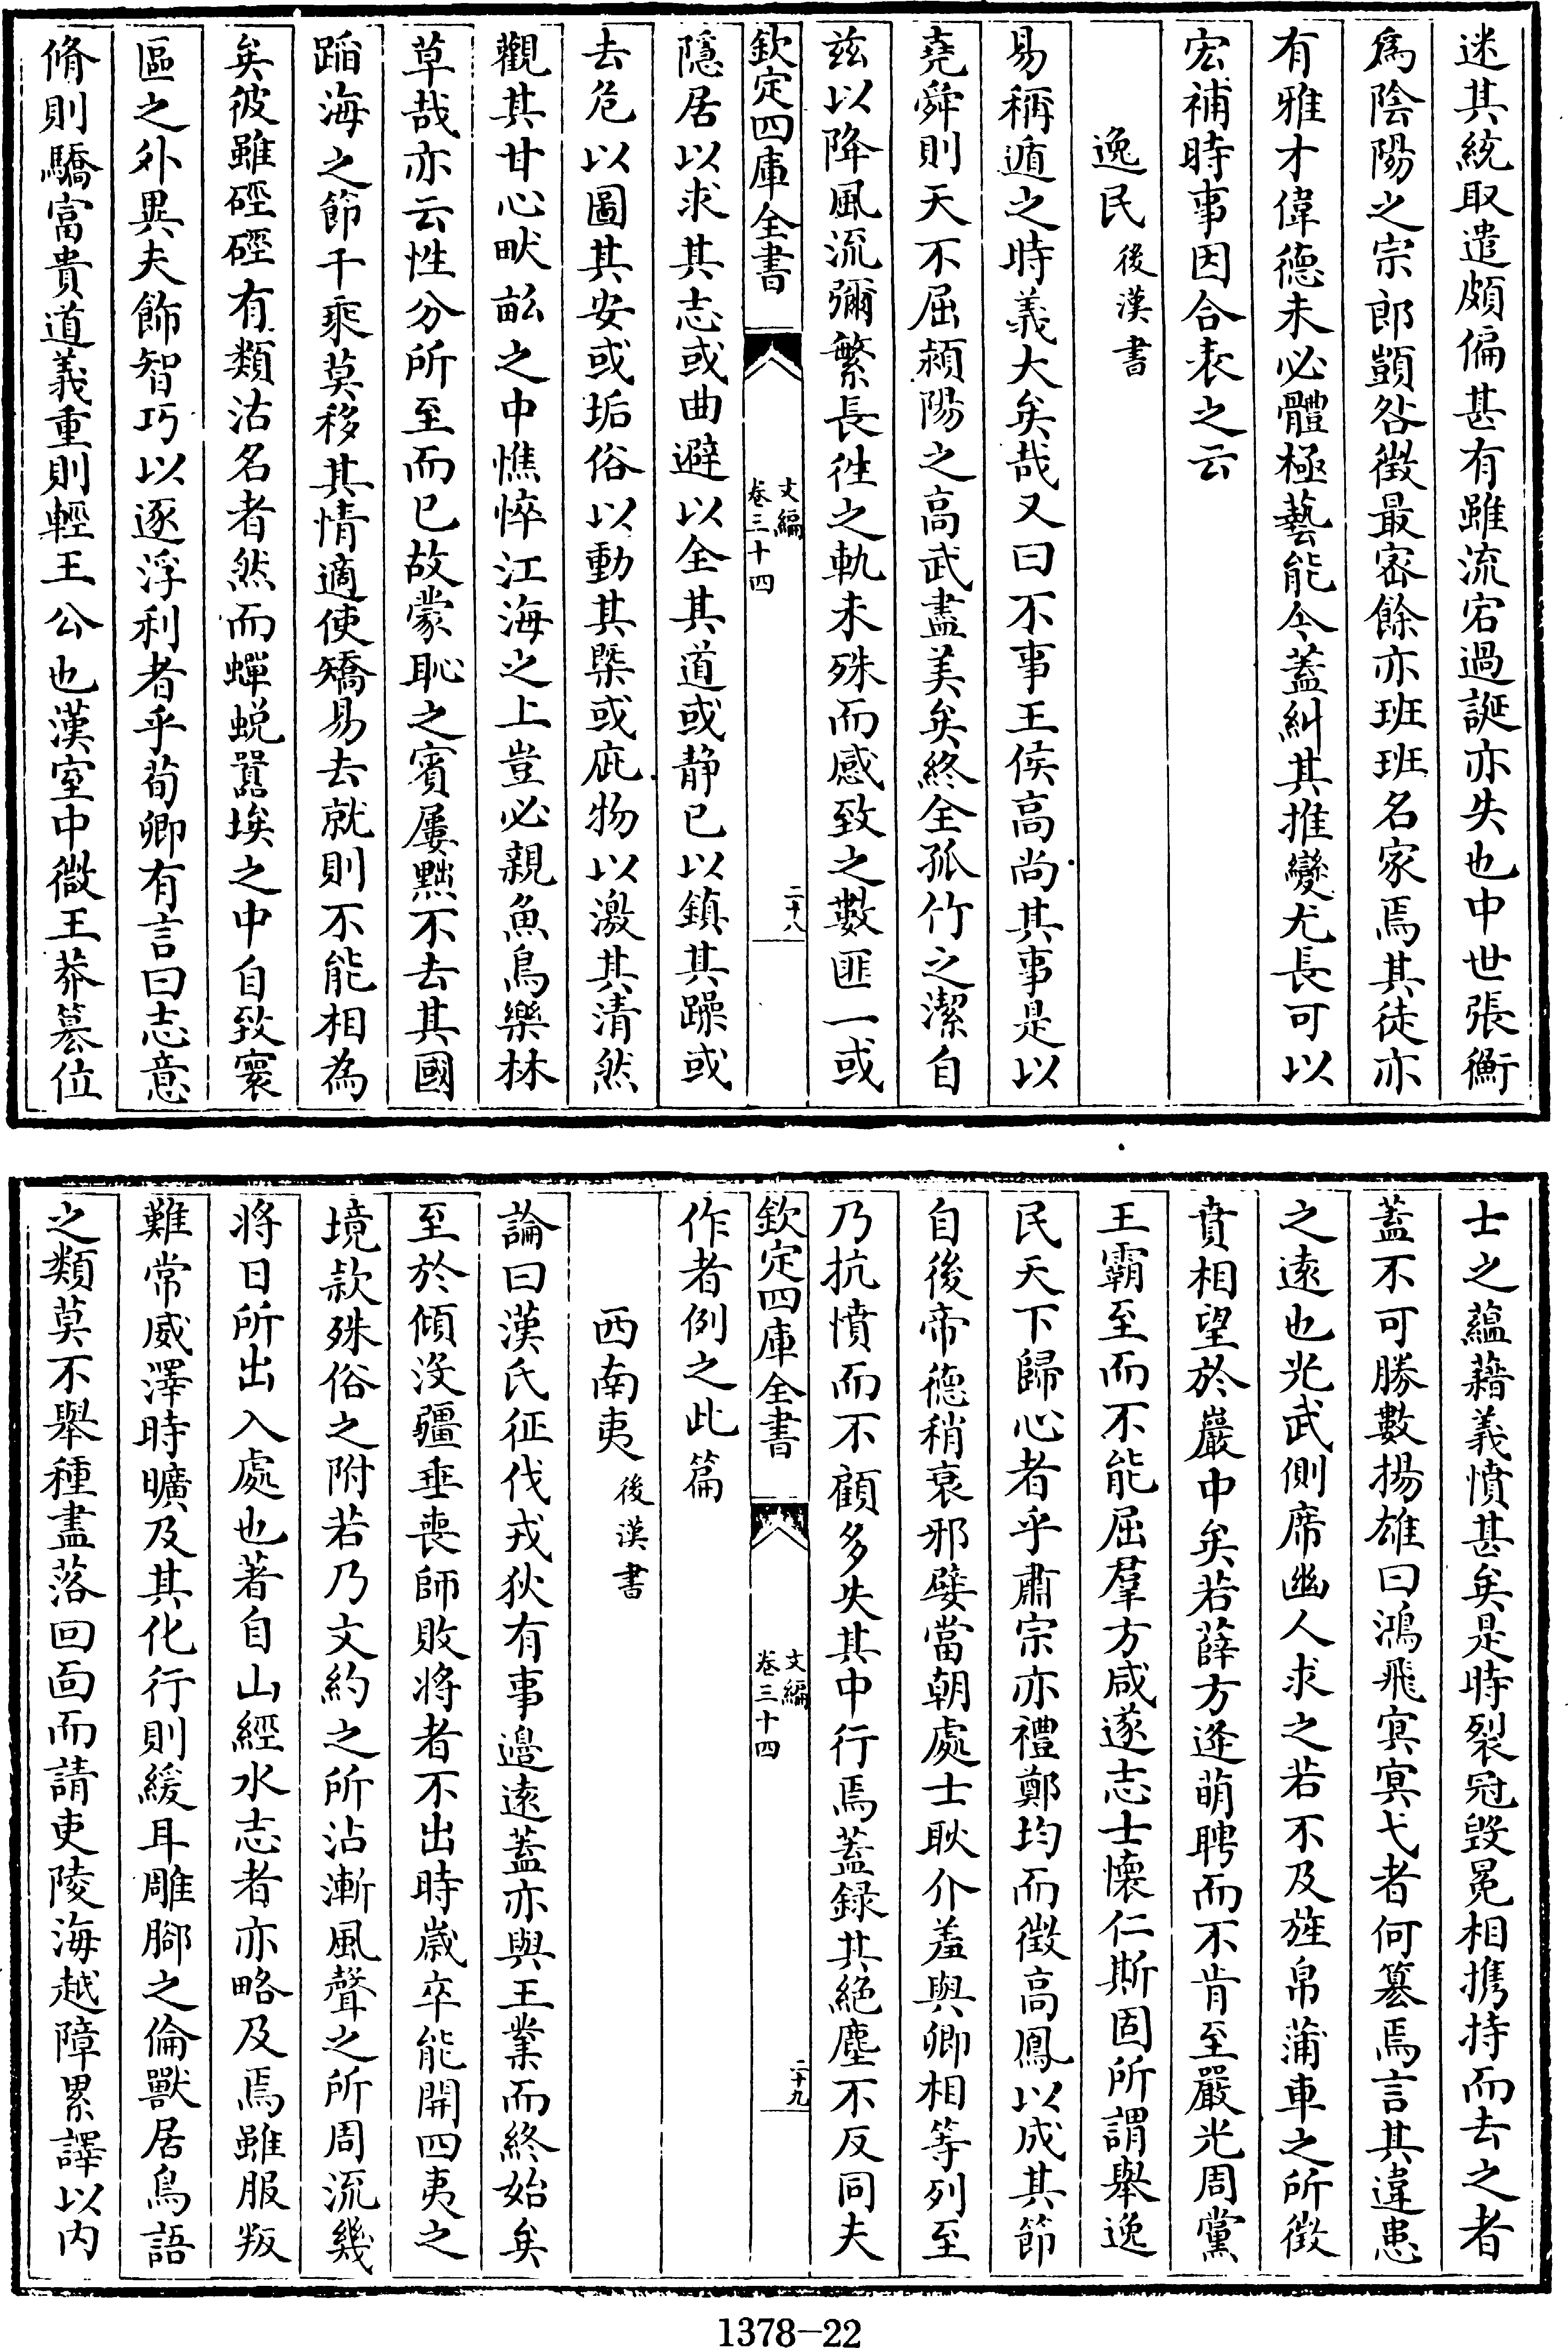 迷其統取遣頗偏甚有雖流宕過誕亦失也中世張衡
爲陰陽之宗郎顗咎徵最宻餘亦班班名家焉其徒亦
有雅才偉德未必體極藝能今蓋糾其推變尤長可以
宏補時事因合表之云
逸民後漢書
易稱遁之時義大矣哉又曰不事王侯高尚其事是以
堯舜則天不屈潁陽之高武盡美矣終全孤竹之潔自
兹以降風流彌繁長徃之軌未殊而感致之數匪一或
欽定四庫全書
文編
卷三十四
二十八
隱居以求其志或曲避以全其道或静已以鎮其躁或
去危以圖其安或垢俗以動其槩或庇物以激其清然
觀其甘心畎畝之中憔悴江海之上豈必親魚鳥樂林
草哉亦云性分所至而已故蒙恥之賓屢黜不去其國
蹈海之節千乘莫移其情適使矯易去就則不能相為
矣彼雖硜硜有類沽名者然而蟬蛻囂埃之中自致寰
區之外異夫飾智巧以逐浮利者乎荀卿有言曰志意
脩則驕富貴道義重則輕王公也漢室中微王莽簒位
士之藴藉義憤甚矣是時裂冠毁冕相携持而去之者
蓋不可勝數揚雄曰鴻飛冥冥弋者何簒焉言其違患
之逺也光武側席幽人求之若不及旌帛蒲車之所徵
賁相望於巖中矣若薛方逄萌聘而不肯至嚴光周黨
王霸至而不能屈羣方咸遂志士懷仁斯固所謂舉逸
民天下歸心者乎肅宗亦禮鄭均而徵高鳳以成其節
自後帝德稍衰邪嬖當朝處士耿介羞與卿相等列至
乃抗憤而不顧多失其中行焉蓋録其絶塵不反同夫
欽定四庫全書
文編
卷三十四
二十九
作者例之此篇
西南夷後漢書
論曰漢氏征伐戎狄有事邊逺蓋亦與王業而終始矣
至於傾沒疆垂喪師敗將者不出時嵗卒能開四夷之
境款殊俗之附若乃文約之所沾漸風聲之所周流幾
將日所出入處也著自山經水志者亦略及焉雖服叛
難常威澤時曠及其化行則緩耳雕脚之倫獸居鳥語
之類莫不舉種盡落回面而請吏陵海越障累譯以内
1378-22